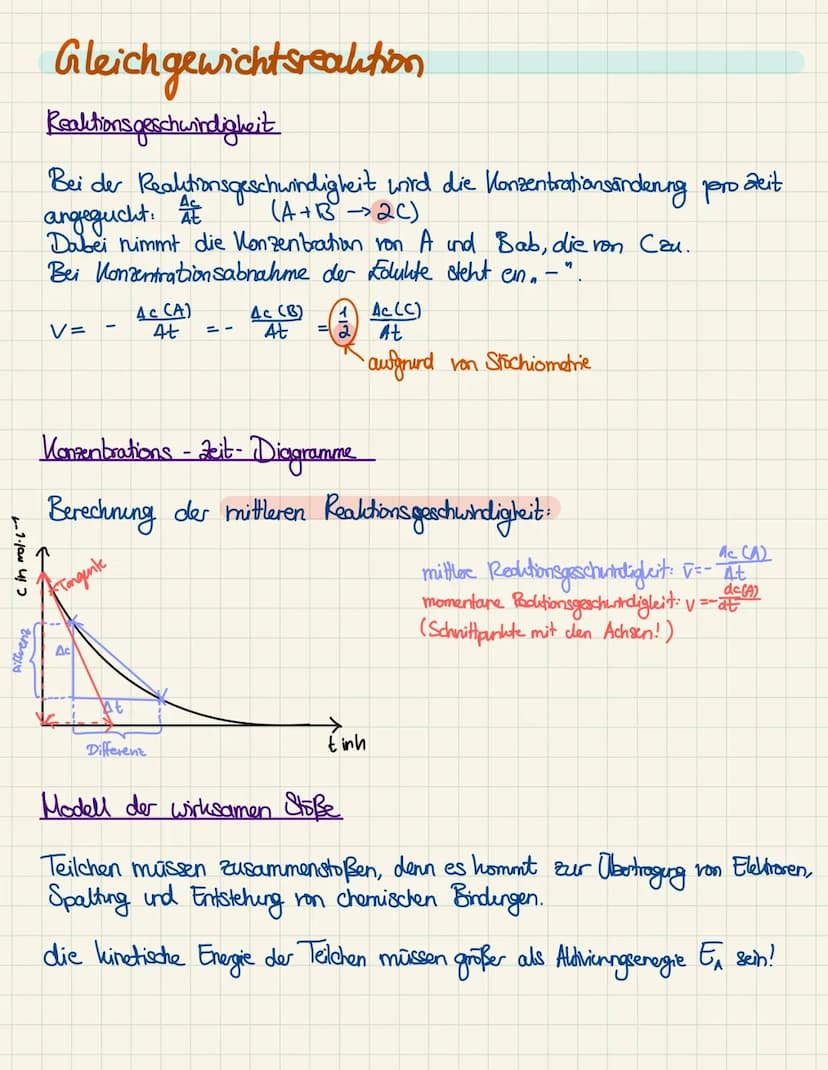 Gleichgewichtsreaktion
Reaktionsgeschwindigkeit
Bei der Reaktionsgeschwindigkeit wird die Konzentrationsänderung pro Zeit
angeguckt: Δc/Δt (A+B → 2C)
Dabei nimmt die Konzentration von A und B ab, die von C zu.
Bei Konzentrationsabnahme der Edukte steht ein „-".
v = - Δc(A)/Δt = - Δc(B)/Δt = 1/2 Δc(C)/Δt
aufgrund von Stöchiometrie
Konzentrations - Zeit - Diagramme
Berechnung der mittleren Reaktionsgeschwindigkeit:
c in mol·L⁻¹
Tangente
mittlere Reaktionsgeschwindigkeit: v̄ = - Δc(A)/Δt
momentane Reaktionsgeschwindigkeit: v = - dc(A)/dt
(Schnittpunkte mit den Achsen!)
Differenz
Δc
Δt
Differenz
t in h
Modell der wirksamen Stöße
Teilchen müssen zusammenstoßen, denn es kommt zur Übertragung von Elektronen,
Spaltung und Entstehung von chemischen Bindungen.
die kinetische Energie der Teilchen müssen größer als Aktivierungsenergie E_A sein!